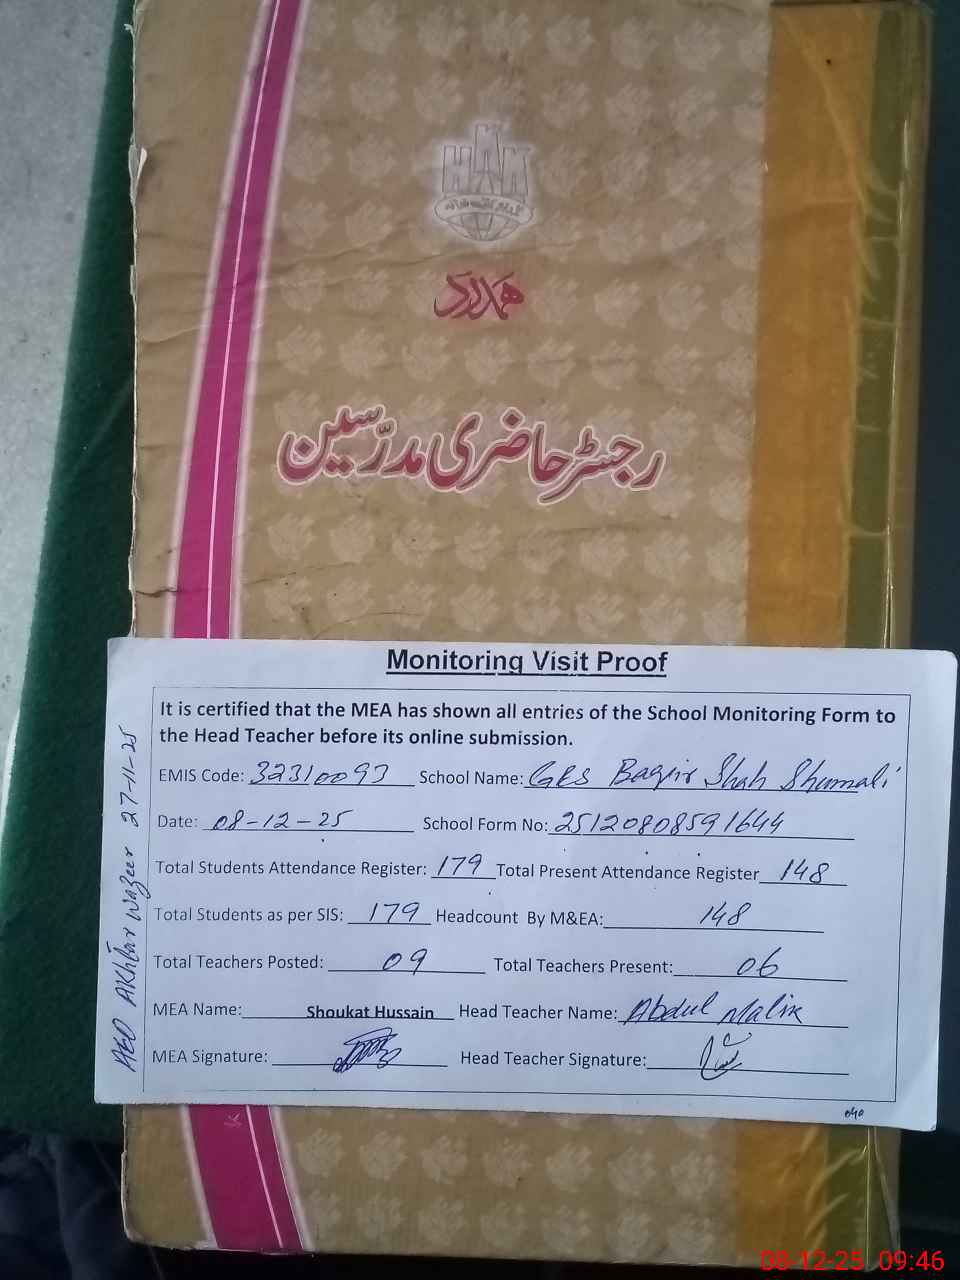 HKK
ہمدرد
رجسٹر حاضری مدرّسین
Monitoring Visit Proof
It is certified that the MEA has shown all entries of the School Monitoring Form to
the Head Teacher before its online submission.
EMIS Code: 32310093 School Name: GES Baqir Shah Shumali
Date: 08-12-25 School Form No: 25120808591644
Total Students Attendance Register: 179 Total Present Attendance Register 148
Total Students as per SIS: 179 Headcount By M&EA: 148
Total Teachers Posted: 09 Total Teachers Present: 06
MEA Name: Shoukat Hussain Head Teacher Name: Abdul Malik
MEA Signature: Head Teacher Signature:
AEO Akhtar Wazeer 27-11-25
08-12-25 09:46